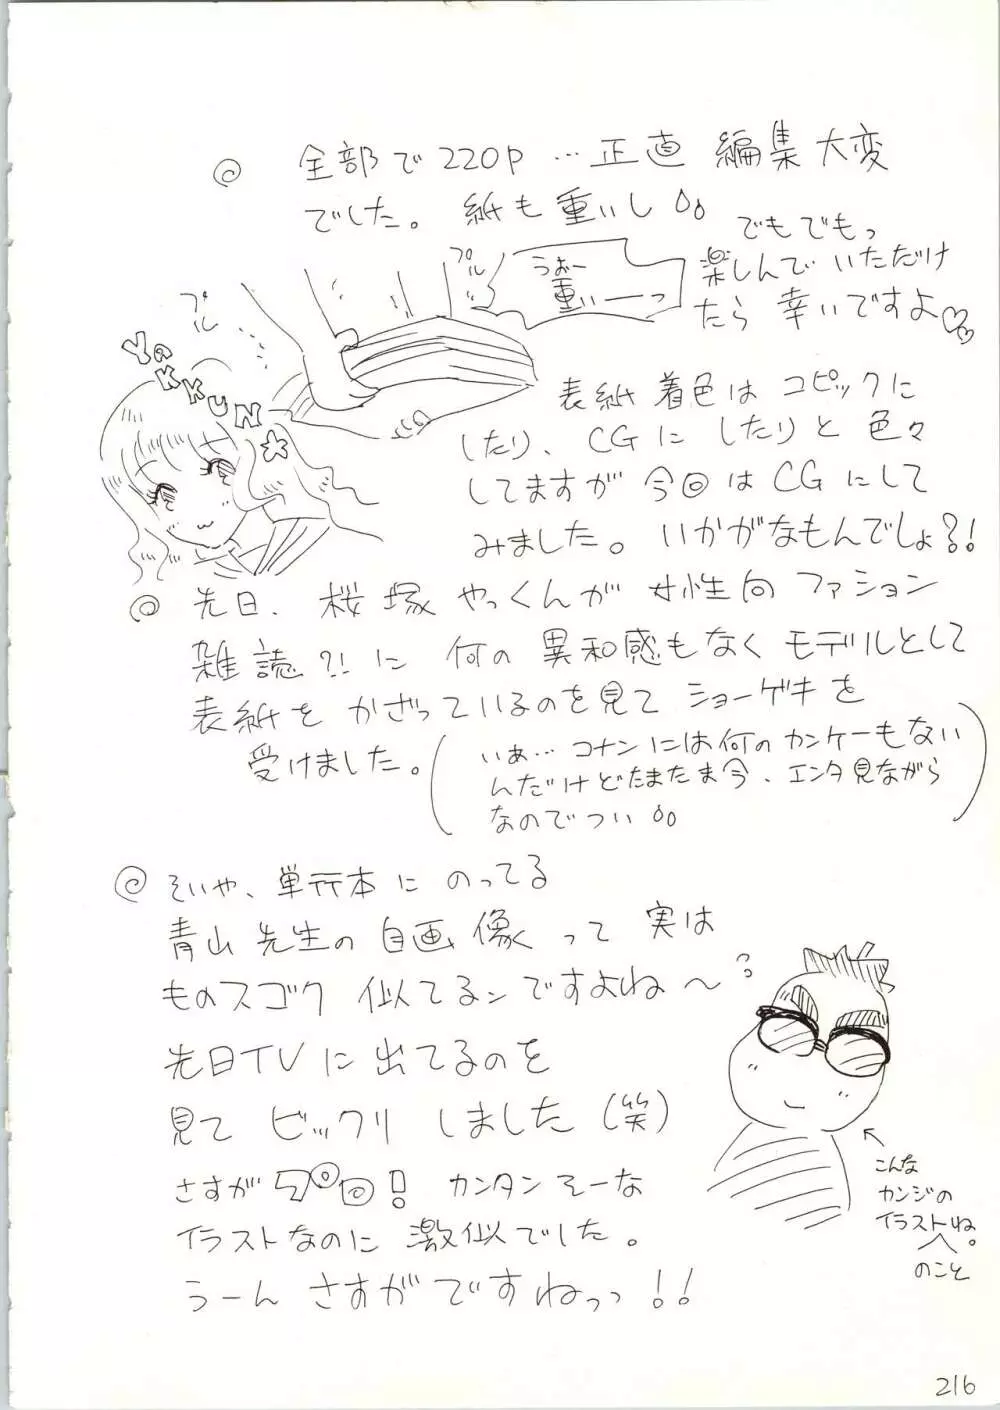 ◎ 全部で220P…正直 編集大変
でした。紙も重いし
でもでもっ
楽しんでいただけ
たら 幸いですよ♡
プル
うおー
重いーっ
プル
YAKKUN☆
表紙着色はコピックに
したり、CGにしたりと色々
してますが今回はCGにして
みました。いかがなもんでしょ?!
◎ 先日、桜塚やっくんが女性向ファション
雑誌?!に何の異和感もなくモデルとして
表紙をかざっているのを見てショーゲキを
受けました。
(いあ…コナンには何のカンケーもない
んだけどたまたま今、エンタ見ながら
なのでつい)
◎ そいや、単行本にのってる
青山先生の自画像って実は
ものスゴク似てるンですよね〜?
先日TVに出てるのを
見てビックリしました(笑)
さすがプロ! カンタンそーな
イラストなのに激似でした。
うーんさすがですねっっ!!
こんな
カンジの
イラストね。
のこと
216